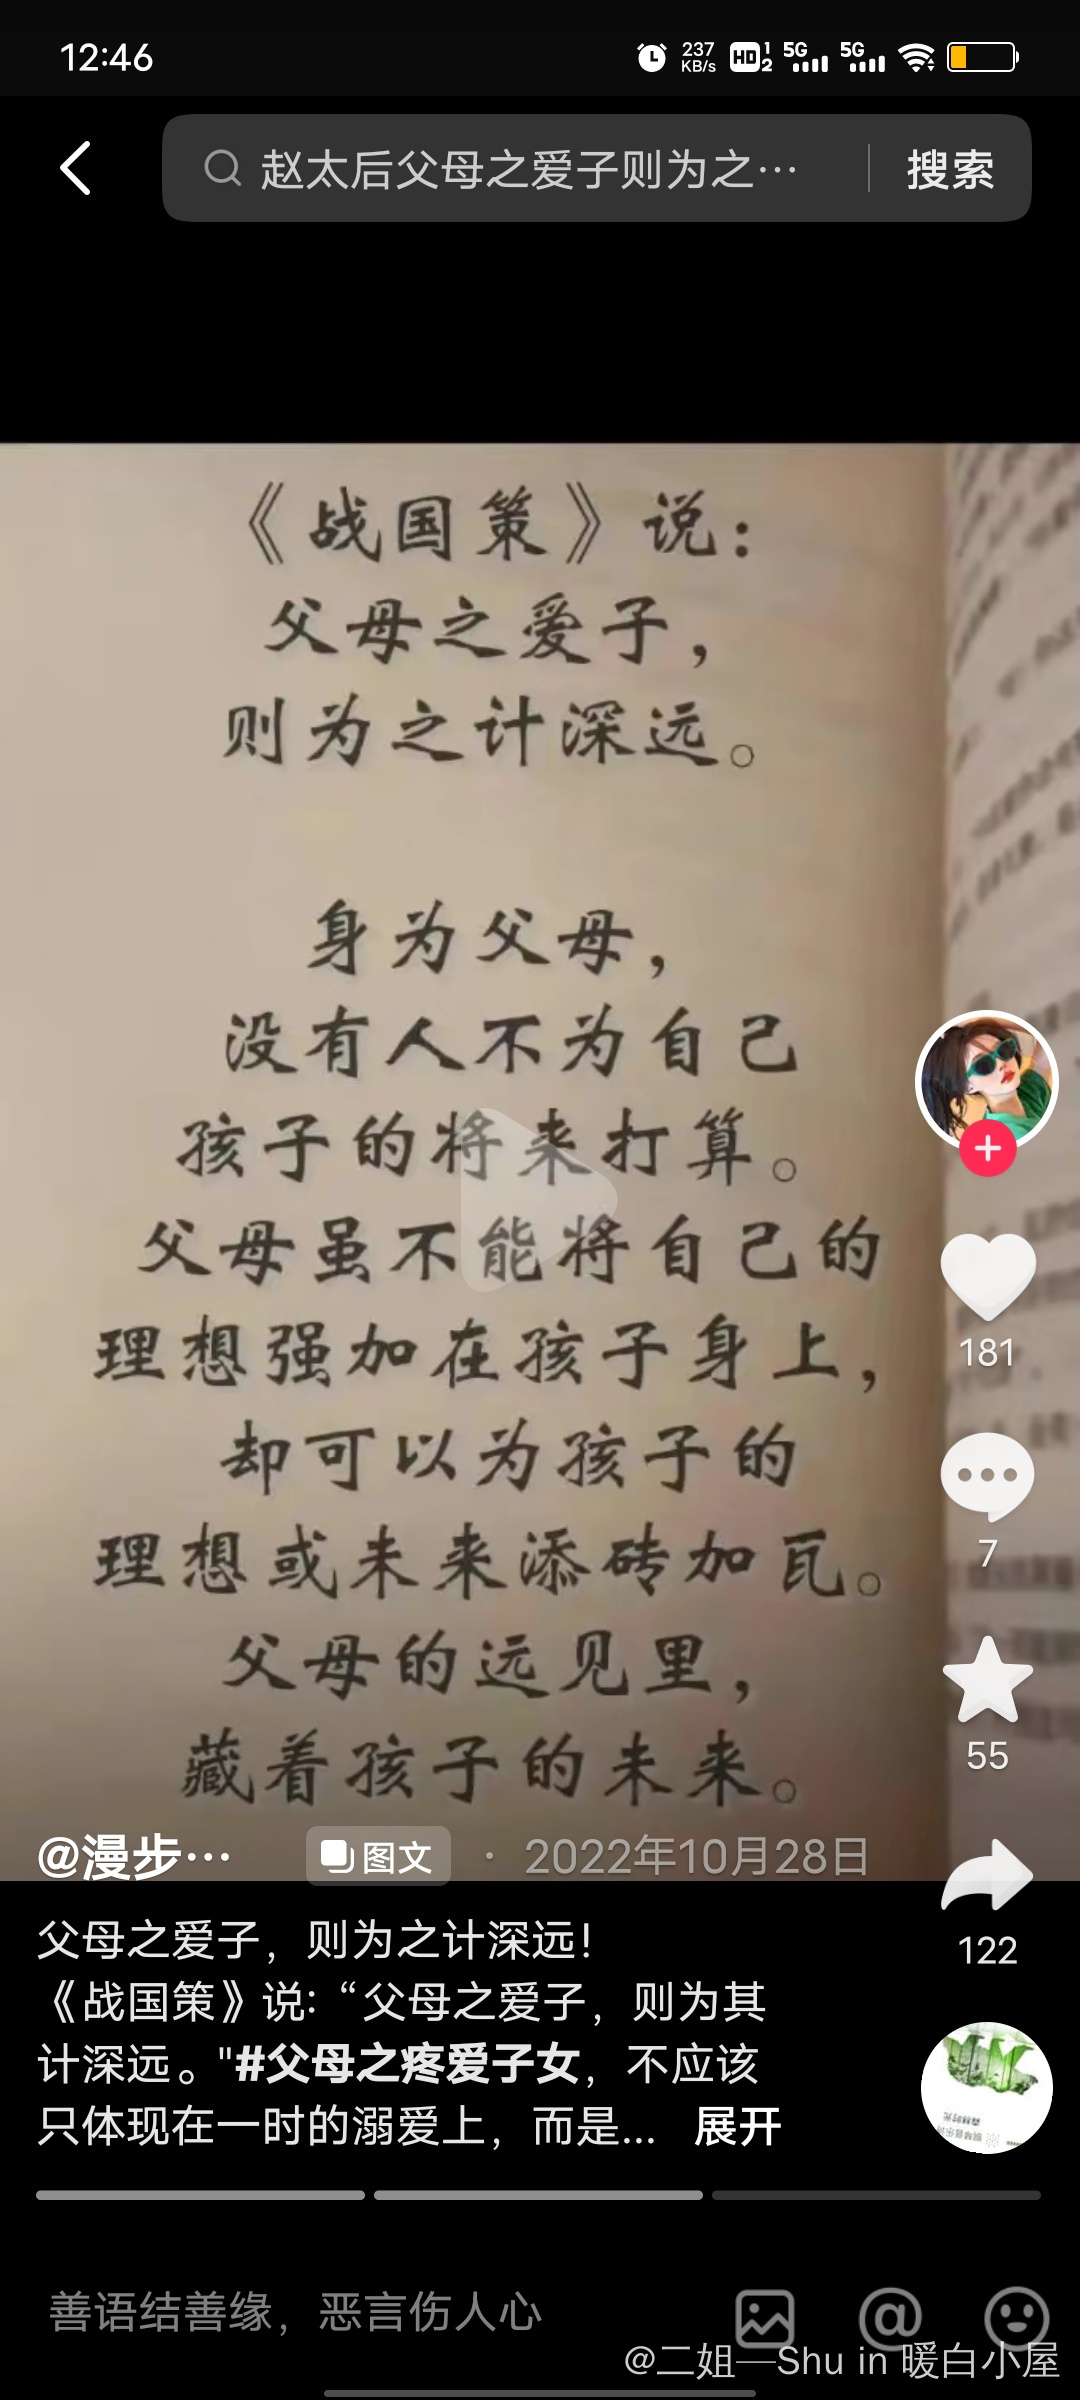 12:46
237
KB/s
HD 1 2
5G
5G
赵太后父母之爱子则为之…
搜索
《战国策》说：
父母之爱子，
则为之计深远。
身为父母，
没有人不为自己
孩子的将来打算。
父母虽不能将自己的
理想强加在孩子身上，
却可以为孩子的
理想或未来添砖加瓦。
父母的远见里，
藏着孩子的未来。
181
7
55
122
@漫步…
图文
· 2022年10月28日
父母之爱子，则为之计深远！
《战国策》说：“父母之爱子，则为其
计深远。"#父母之疼爱子女，不应该
只体现在一时的溺爱上，而是... 展开
善语结善缘，恶言伤人心
@二姐—Shu in 暖白小屋